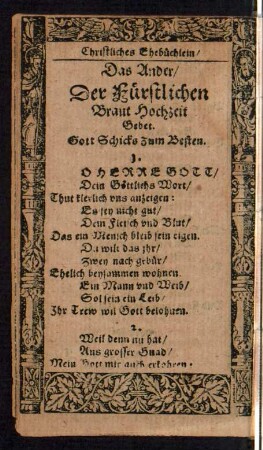 Christliches Ehebüchlein/
Das Ander/
Der Fürstlichen
Braut Hochzeit
Gebet.
Gott Schicks zum Besten.
1.
O HERRE GOTT/
Dein Göttlichs Wort/
Thut klerlich vns anzeigen:
Es sey nicht gut/
Dem Fleisch vnd Blut/
Das ein Mensch bleib sein eigen.
Da wilt das jhr/
Zwey nach gebür/
Ehelich beysammen wohnen.
Ein Mann vnd Weib/
Sol sein ein Leib/
Ihr Trew wil Gott belohnen.
2.
Weil denn nu hat/
Aus grosser Gnad/
Mein Gott mir auch erkohren: